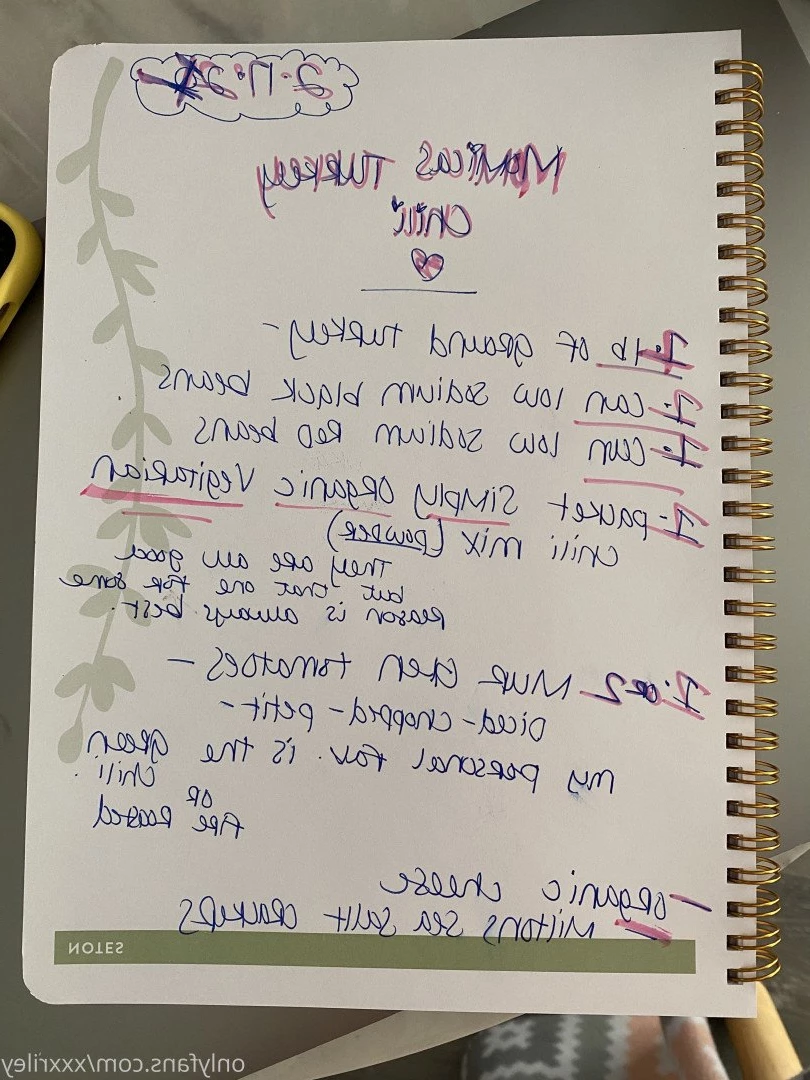 2·17·2
MONICAS TURKEY
Chili
1·lb of ground turkey -
1- can low sodium black beans
1- can low sodium Red beans
1- packet Simply ORGANIC VEgitaRian
chili mix (powder)
They are all good
but that one foR some
Reason is always best.
1·or2 MUIR Glen tomatoes -
DICED - chopped - petit -
my personal fav. is the GReen
Chili.
OR
fiRe Roasted
- ORganic cheese
- Miltons Sea Salt CRackeRS
NOTES
onlyfans.com/xxxriley